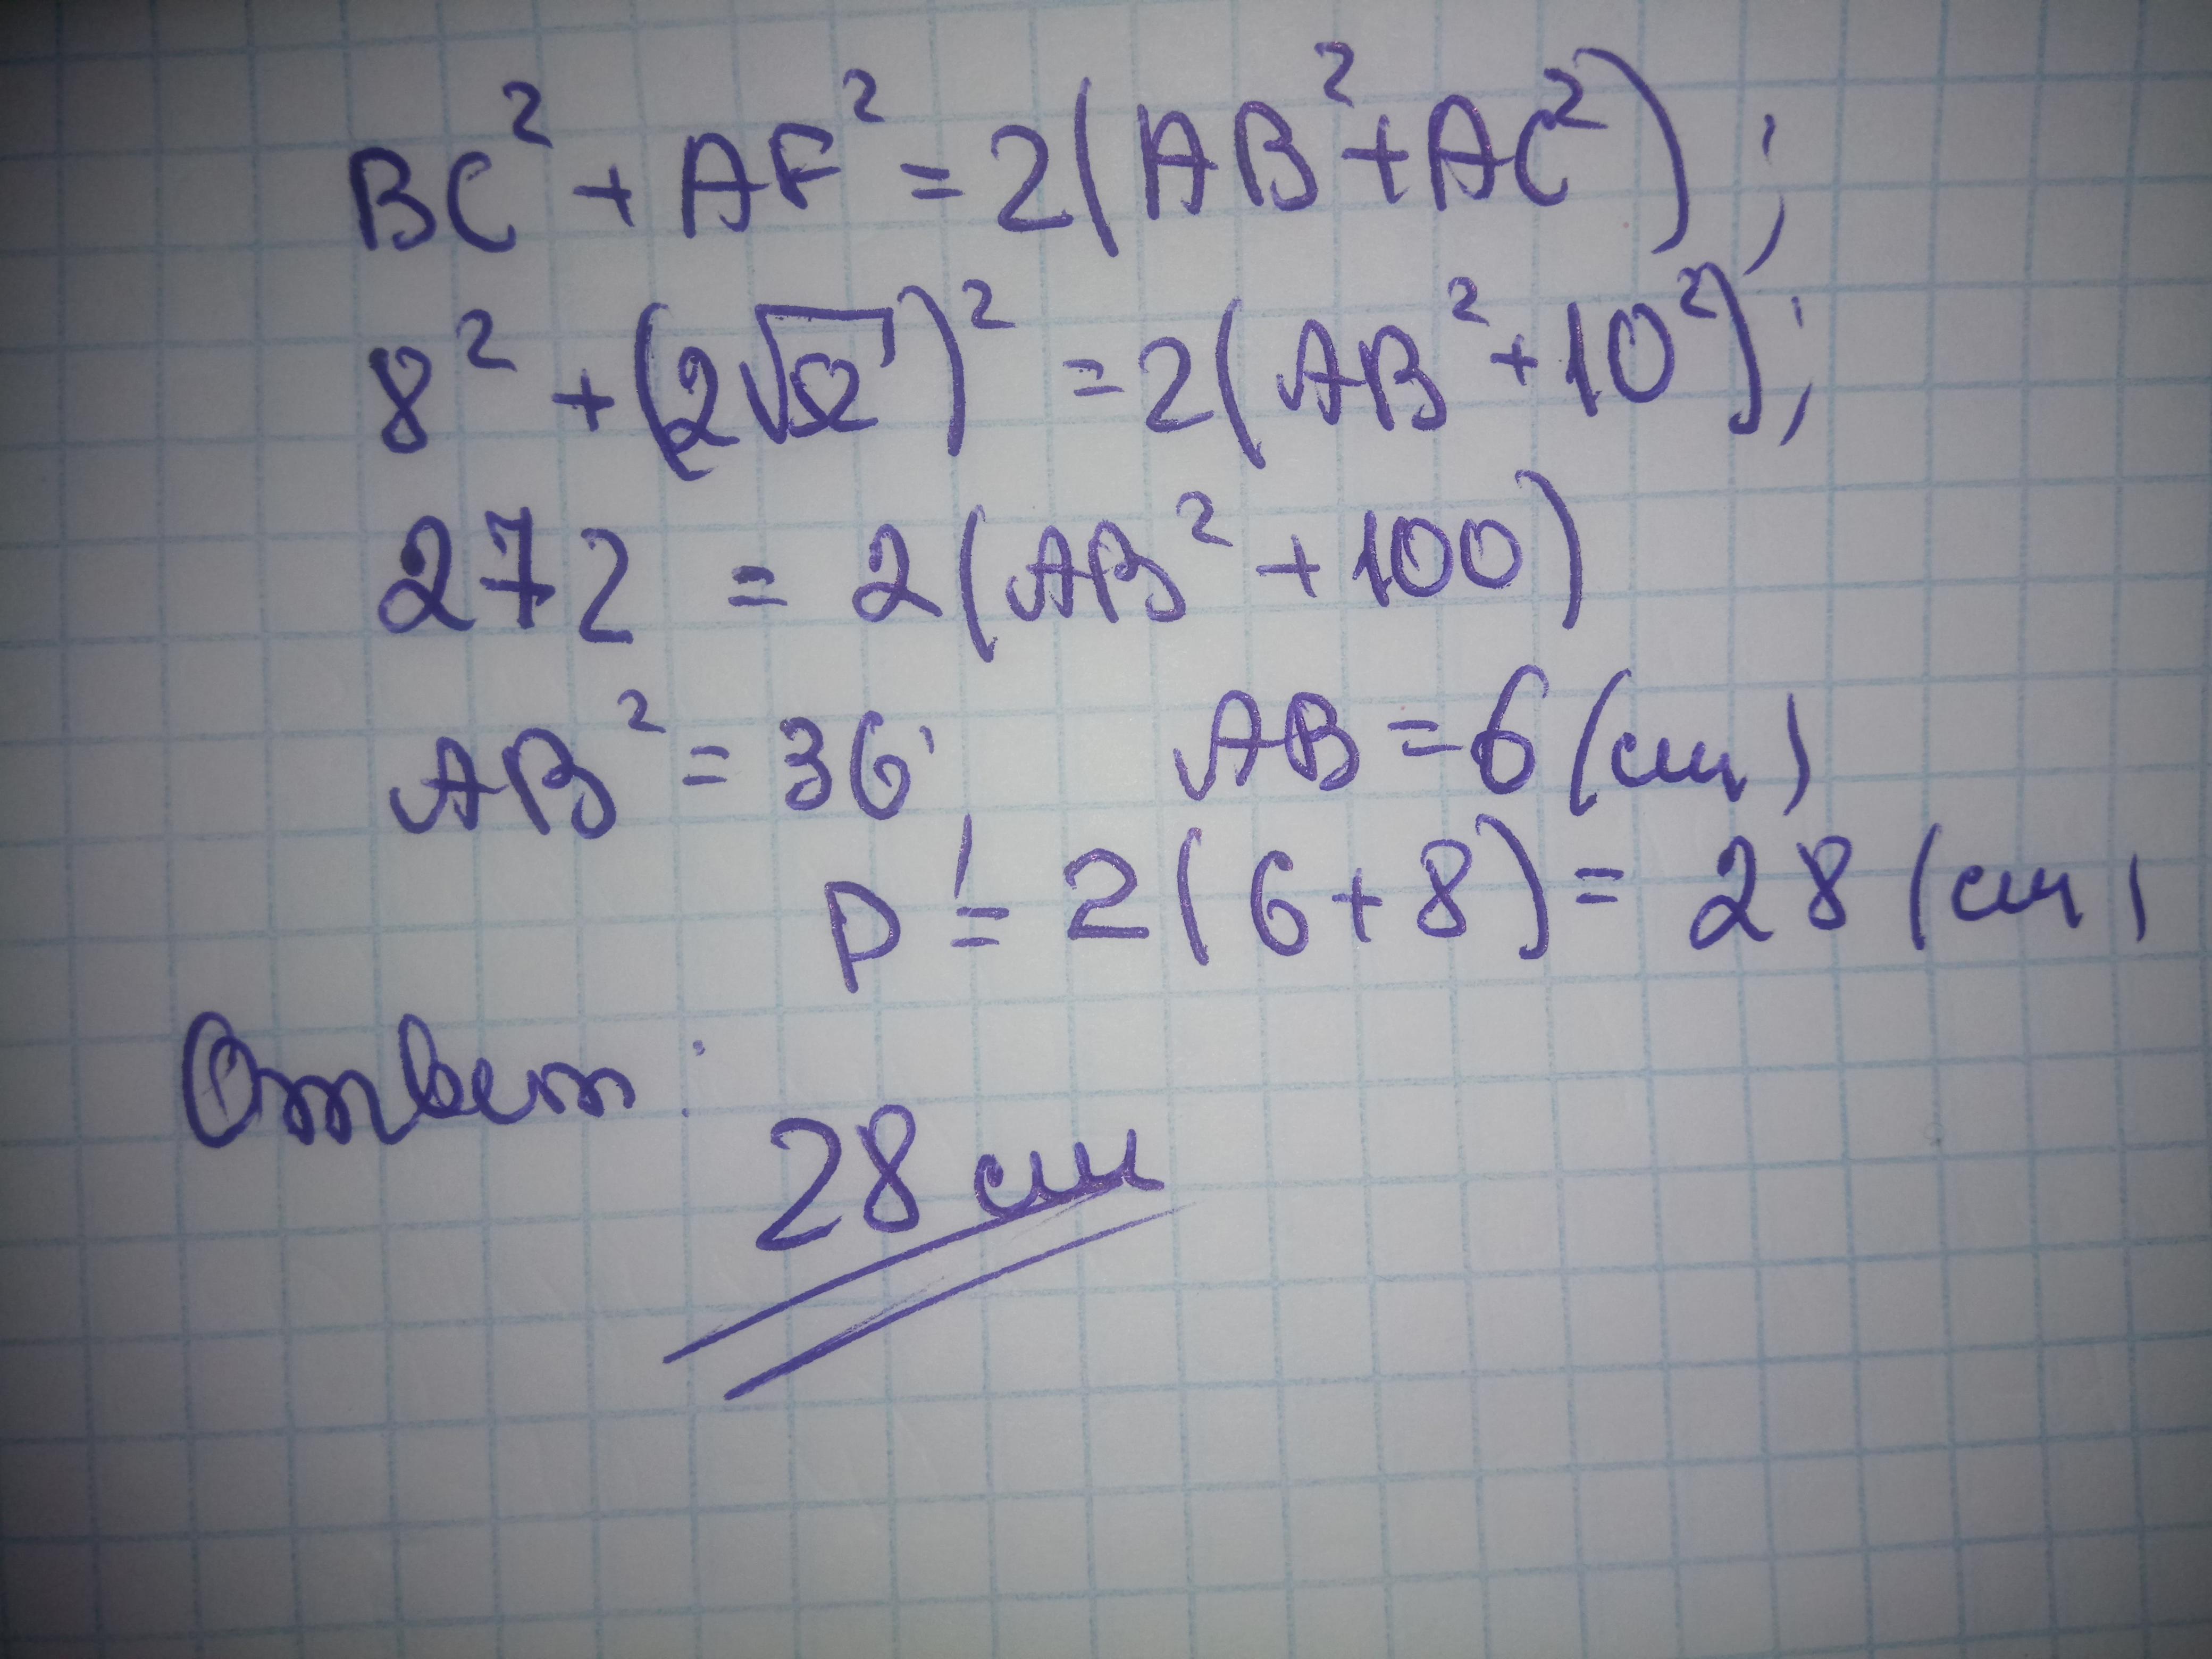 BC² + AF² = 2(AB² + AC²);
8² + (2√52)² = 2(AB² + 10²);
272 = 2(AB² + 100)
AB² = 36; AB = 6 (см)
P = 2(6+8) = 28 (см)
Ответ:
28 см